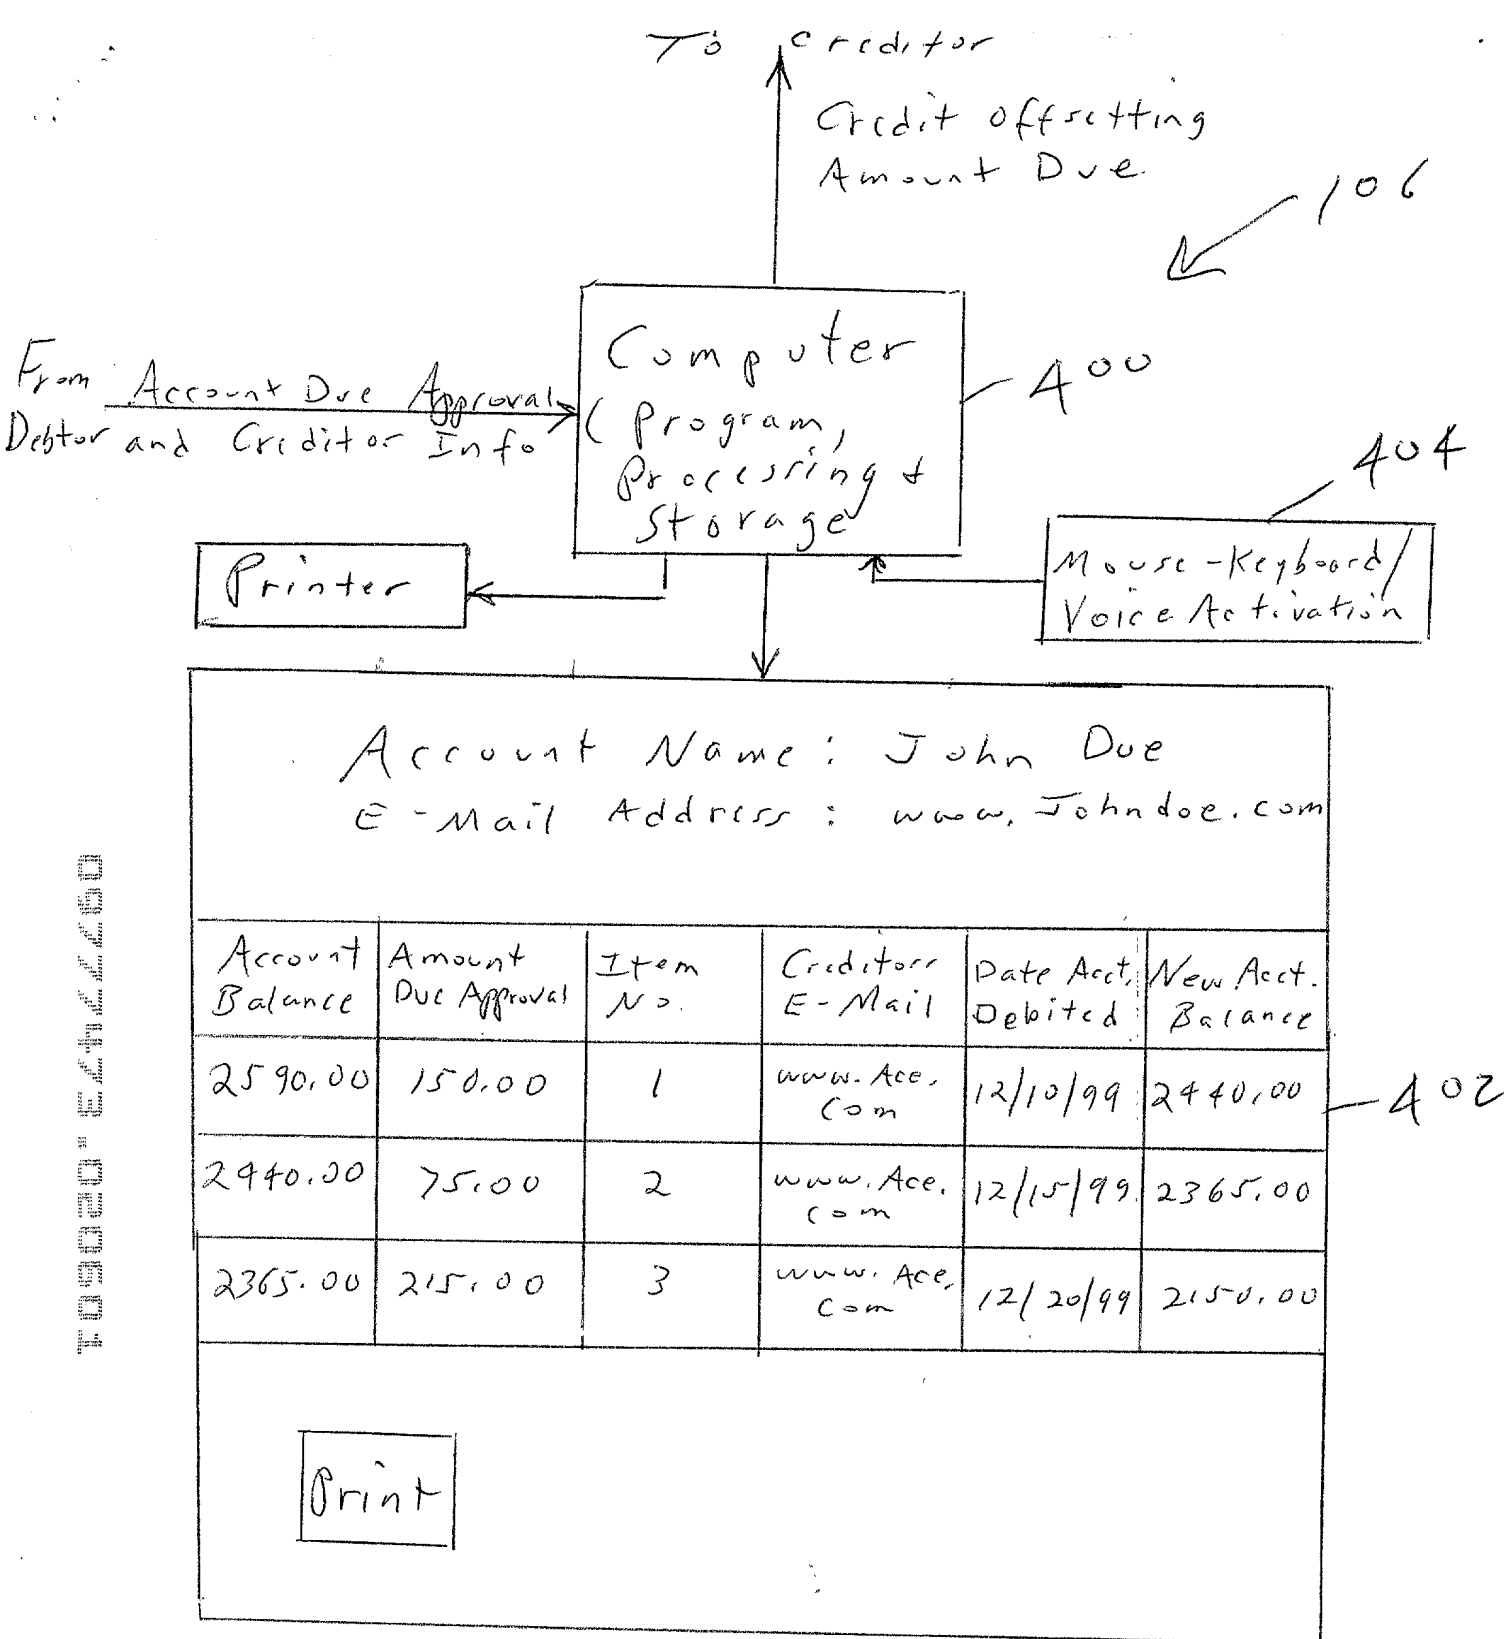 To creditor
Credit offsetting
Amount Due
106
Computer
(Program,
Processing +
Storage
400
From Account Due Approval
Debtor and Creditor Info
404
Mouse-Keyboard/
Voice Activation
Printer
Account Name: John Due
E-Mail Address: www.Johndoe.com
Account Balance Amount Due Approval Item No. Creditors E-Mail Date Acct. Debited New Acct. Balance
2590.00 150.00 1 www.Ace.com 12/10/99 2440.00
402
2440.00 75.00 2 www.Ace.com 12/15/99 2365.00
2365.00 215.00 3 www.Ace.com 12/20/99 2150.00
Print
09774773.020501